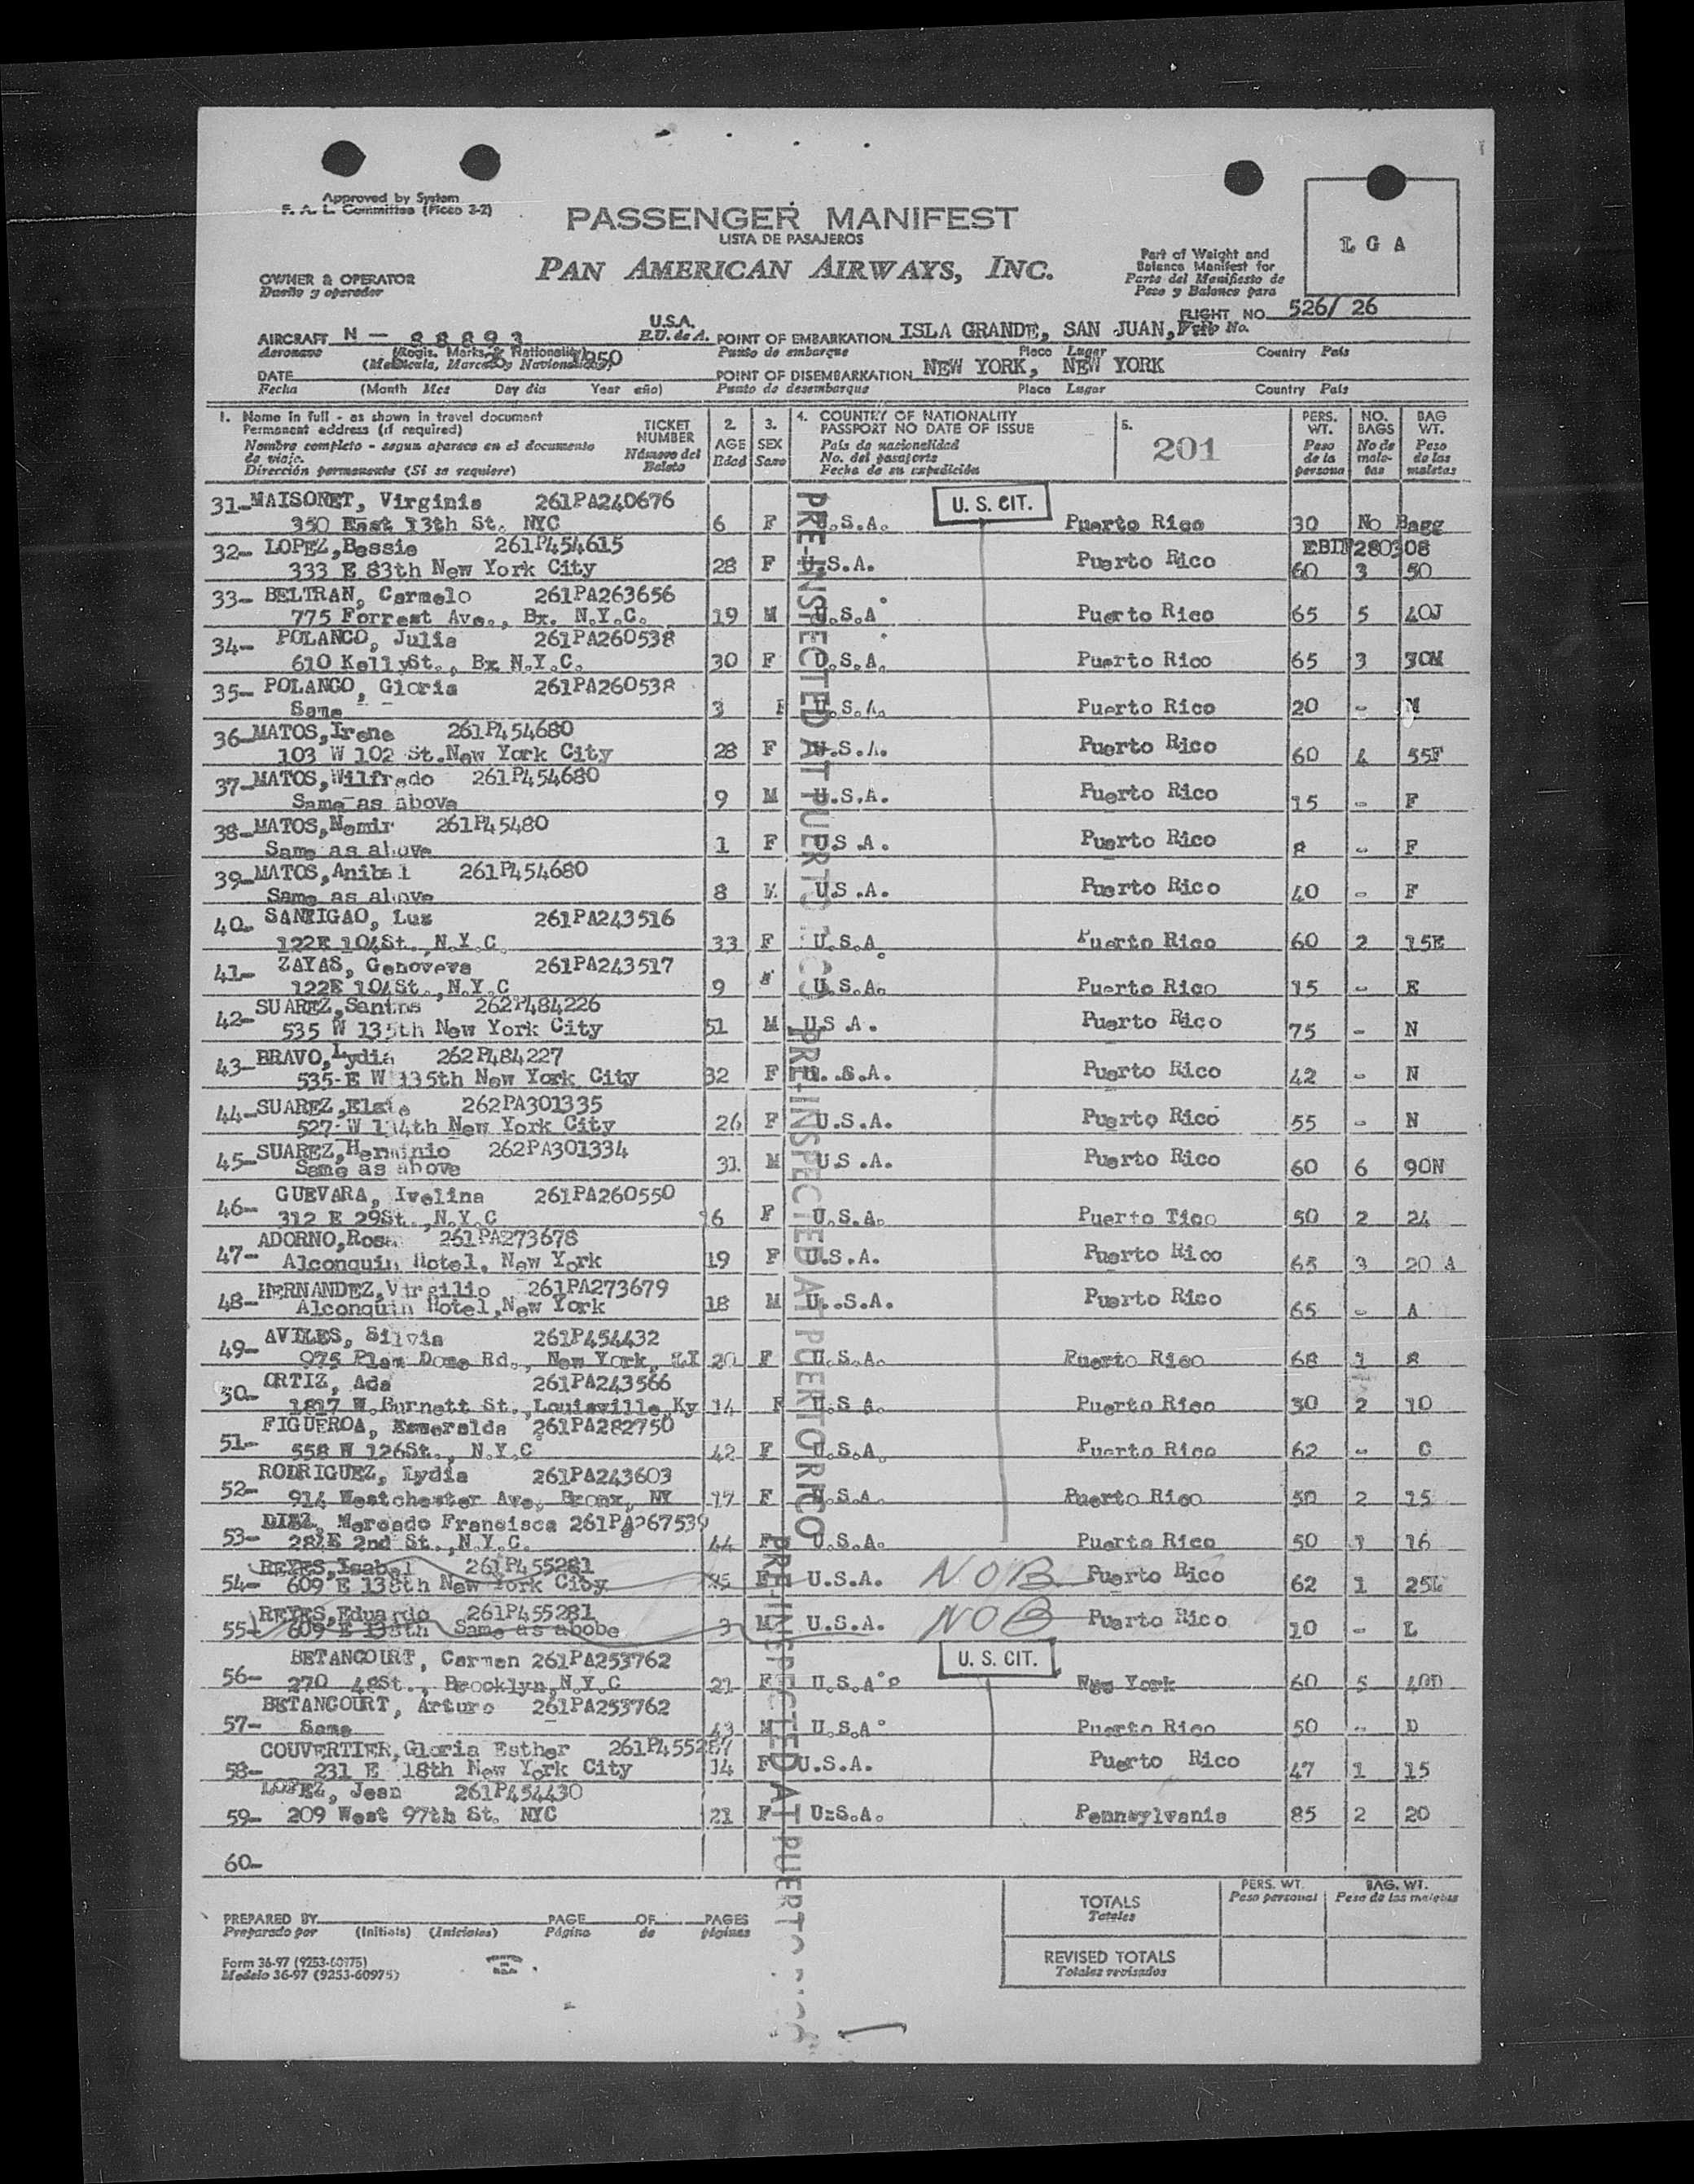 Approved by System
F. A. L. Committee (Ficco 3-2)
PASSENGER MANIFEST
LISTA DE PASAJEROS
PAN AMERICAN AIRWAYS, INC.
L G A
Part of Weight and
Balance Manifest for
Parte del Manifiesto de
Peso y Balance para
OWNER & OPERATOR
Dueño y operador
FLIGHT NO. 526/ 26
AIRCRAFT N - 88893 U.S.A. E.U. de A. POINT OF EMBARKATION ISLA GRANDE, SAN JUAN,
Aeronave (Regis. Marks & Nationality) Punto de embarque Place Lugar Country País
(Matricula, Marcas y Nacionalidad) 1950
DATE POINT OF DISEMBARKATION NEW YORK, NEW YORK
Fecha (Month Mes Day día Year año) Punto de desembarque Place Lugar Country País
1. Name in full - as shown in travel document
Permanent address (if required)
Nombre completo - segun aparece en el documento
de viaje.
Dirección permanente (Si se requiere)
TICKET
NUMBER
Número del
Boleto
2.
AGE
Edad
3.
SEX
Sexo
4. COUNTRY OF NATIONALITY
PASSPORT NO DATE OF ISSUE
País de nacionalidad
No. del pasaporte
Fecha de su expedición
5.
201
PERS.
WT.
Peso
de la
persona
NO.
BAGS
No de
male-
tas
BAG
WT.
Peso
de las
maletas
PRE-INSPECTED AT PUERTO
PRE-INSPECTED AT PUERTO RICO
PRE-INSPECTED AT PUERTO
U. S. CIT.
31-MAISONET, Virginia 261PA240676
350 East 13th St. NYC 6 F U.S.A. Puerto Rico 30 No Bagg
32- LOPEZ,Bessie 261P454615 EBIT280308
333 E 83th New York City 28 F U.S.A. Puerto Rico 60 3 50
33- BELTRAN, Carmelo 261PA263656
775 Forrest Ave., Bx. N.Y.C. 19 M U.S.A. Puerto Rico 65 5 40J
34- POLANCO, Julia 261PA260538
610 KellySt., Bx N.Y.C. 30 F U.S.A. Puerto Rico 65 3 30M
35- POLANCO, Gloria 261PA260538
Same 3 F U.S.A. Puerto Rico 20 - M
36-MATOS,Irene 261P454680
103 W 102 St.New York City 28 F U.S.A. Puerto Rico 60 4 55F
37-MATOS,Wilfredo 261P454680
Same as above 9 M U.S.A. Puerto Rico 15 - F
38-MATOS,Nomir 261P45480
Same as above 1 F U.S.A. Puerto Rico 8 - F
39-MATOS,Anibal 261P454680
Same as above 8 M U.S.A. Puerto Rico 40 - F
40- Luz 261PA243516
122E 104St., N.Y.C 33 F U.S.A. Puerto Rico 60 2 15E
41- ZAYAS, Genoveva 261PA243517
122E 104St.,N.Y.C 9 U.S.A. Puerto Rico 15 - E
42- SUAREZ,Santos 262P484226
535 W 135th New York City 51 M U.S.A. Puerto Rico 75 - N
43-BRAVO,Lydia 262P484227
535-E W 135th New York City 32 F U.S.A. Puerto Rico 42 - N
44-SUAREZ,Elsie 262PA301335
527-W 134th New York City 26 F U.S.A. Puerto Rico 55 - N
45-SUAREZ,Herminio 262PA301334
Same as above 31 M U.S.A. Puerto Rico 60 6 90N
46- GUEVARA, Ivelina 261PA260550
312 E 29St.,N.Y.C 16 F U.S.A. Puerto Tico 50 2 24
47- ADORNO,Rosa 261PA273678
Alconquin Hotel, New York 19 F U.S.A. Puerto Rico 65 3 20 A
48-HERNANDEZ,Virgilio 261PA273679
Alconquin Hotel,New York 18 M U..S.A. Puerto Rico 65 - A
49- AVILES, Silvia 261P454432
975 Plam Dome Rd., New York, LI 20 F U.S.A. Puerto Rico 68 1 8
50- ORTIZ, Ada 261PA243566
1817 W.Burnett St.,Louisville,Ky 14 F U.S.A. Puerto Rico 30 2 10
51- FIGUEROA, Esmeralda 261PA282750
558 W 126St., N.Y.C 42 F U.S.A Puerto Rico 62 - C
52- RODRIGUEZ, Lydia 261PA243603
914 Westchester Ave, Bronx, NY 17 F U.S.A. Puerto Rico 50 2 15
53- DIEZ, Mercado Francisca 261PA267539
284E 2nd St.,N.Y.C. 44 F U.S.A. Puerto Rico 50 1 16
54- REYES,Isabel 261P455281
609 E 138th New York City F U.S.A. NOB Puerto Rico 62 1 25L
55- REYES,Eduardo 261P455281
609 E 138th Same as abobe 3 M U.S.A. NOB Puerto Rico 10 - L
U. S. CIT.
56- BETANCOURT, Carmen 261PA253762
270 48St., Brooklyn,N.Y.C 21 F U.S.A. New York 60 5 40D
57- BETANCOURT, Arturo 261PA253762
Same 43 M U.S.A. Puerto Rico 50 - D
58- COUVERTIER,Gloria Esther 261P455287
231 E 18th New York City 14 F U.S.A. Puerto Rico 47 1 15
59- LOPEZ, Jean 261P454430
209 West 97th St. NYC 21 F U.S.A. Pennsylvania 85 2 20
60-
PERS. WT. BAG. WT.
Peso personal Peso de las maletas
TOTALS
Totales
REVISED TOTALS
Totales revisados
PREPARED BY PAGE OF PAGES
Preparado por (Initials) (Iniciales) Página de páginas
Form 36-97 (9253-60975)
Modelo 36-97 (9253-60975)